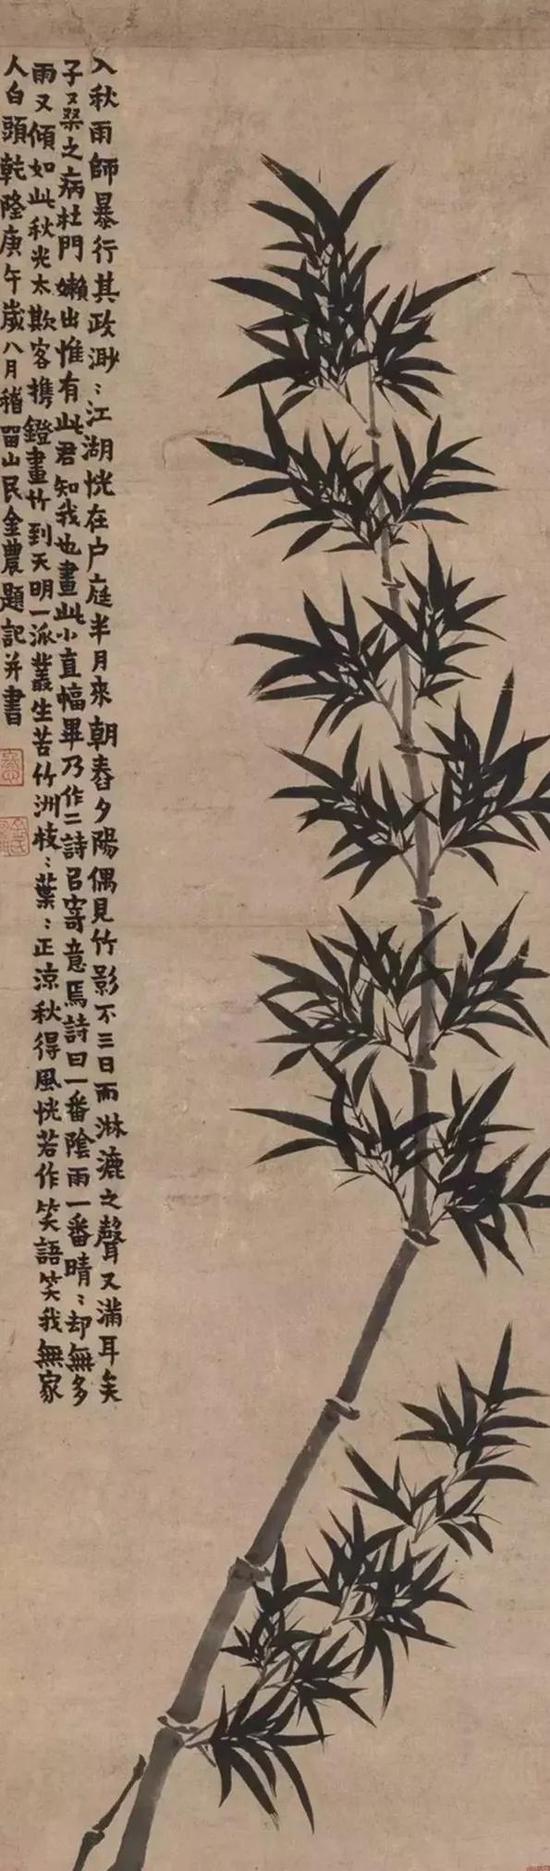 入秋雨師暴行其政渺〻江湖恍在户庭半月來朝舂夕陽偶見竹影不三日而淋漉之聲又滿耳矣
子又桑之病杜門嬾出惟有此君知我也畫此小直幅畢乃作二詩㠯寄意焉詩曰一番陰雨一番晴〻却無多
雨又傾如此秋光太欺客携鐙畫竹到天明一派叢生苦竹洲枝〻葉〻正涼秋得風恍若作笑語笑我無家
人白頭乾隆庚午歲八月稽留山民金農題記并書